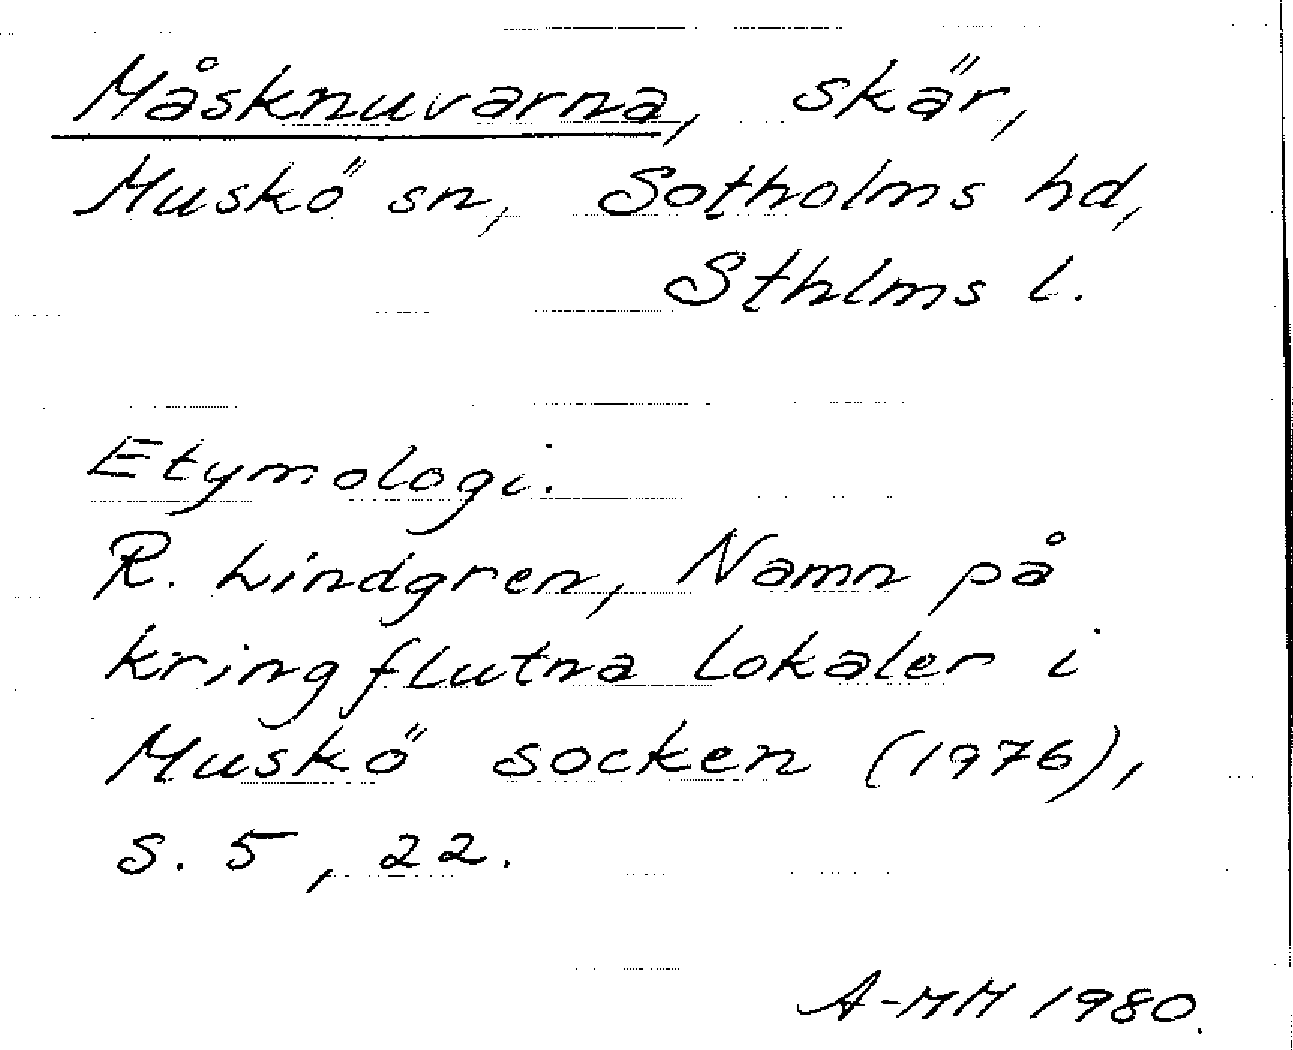 Måsknuvarna, skär,
Muskö sn, Sotholms hd,
Sthlms l.
Etymologi.
R. Lindgren, Namn på
kringflutna lokaler i
Muskö socken (1976),
s. 5, 22.
A-MM 1980.